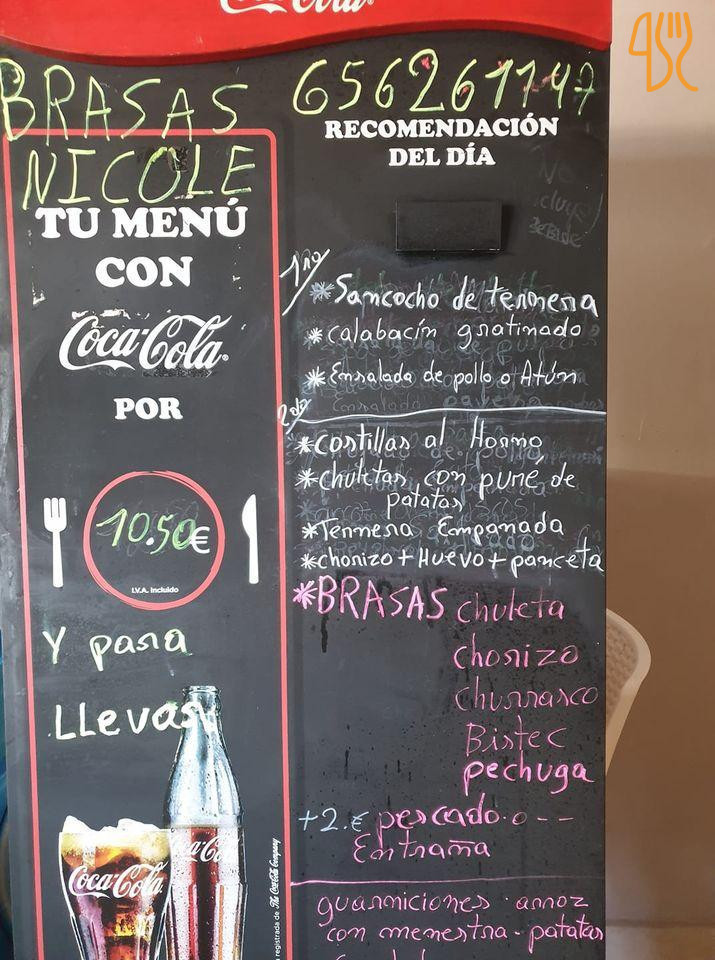 Coca-Cola
BRASAS
NICOLE
TU MENÚ
CON
Coca-Cola
POR
10.50€
I.V.A. incluido
Y para
LLevar
Coca-Cola
Coca-Cola
registrada de The Coca-Cola Company
656261147
RECOMENDACIÓN
DEL DÍA
No
icluye
BeBide
1ro
*Samcocho de ternera
*calabacín gratinado
*Ensalada de pollo o Atún
2do
*costillas al Horno
*chuletas con puré de
patatas
*Ternera Empanada
*chorizo+Huevo+panceta
*BRASAS chuleta
chorizo
churrasco
Bistec
pechuga
+2.€ pescado.o--
Entraña
guarniciones.arroz
con menestra.patatas